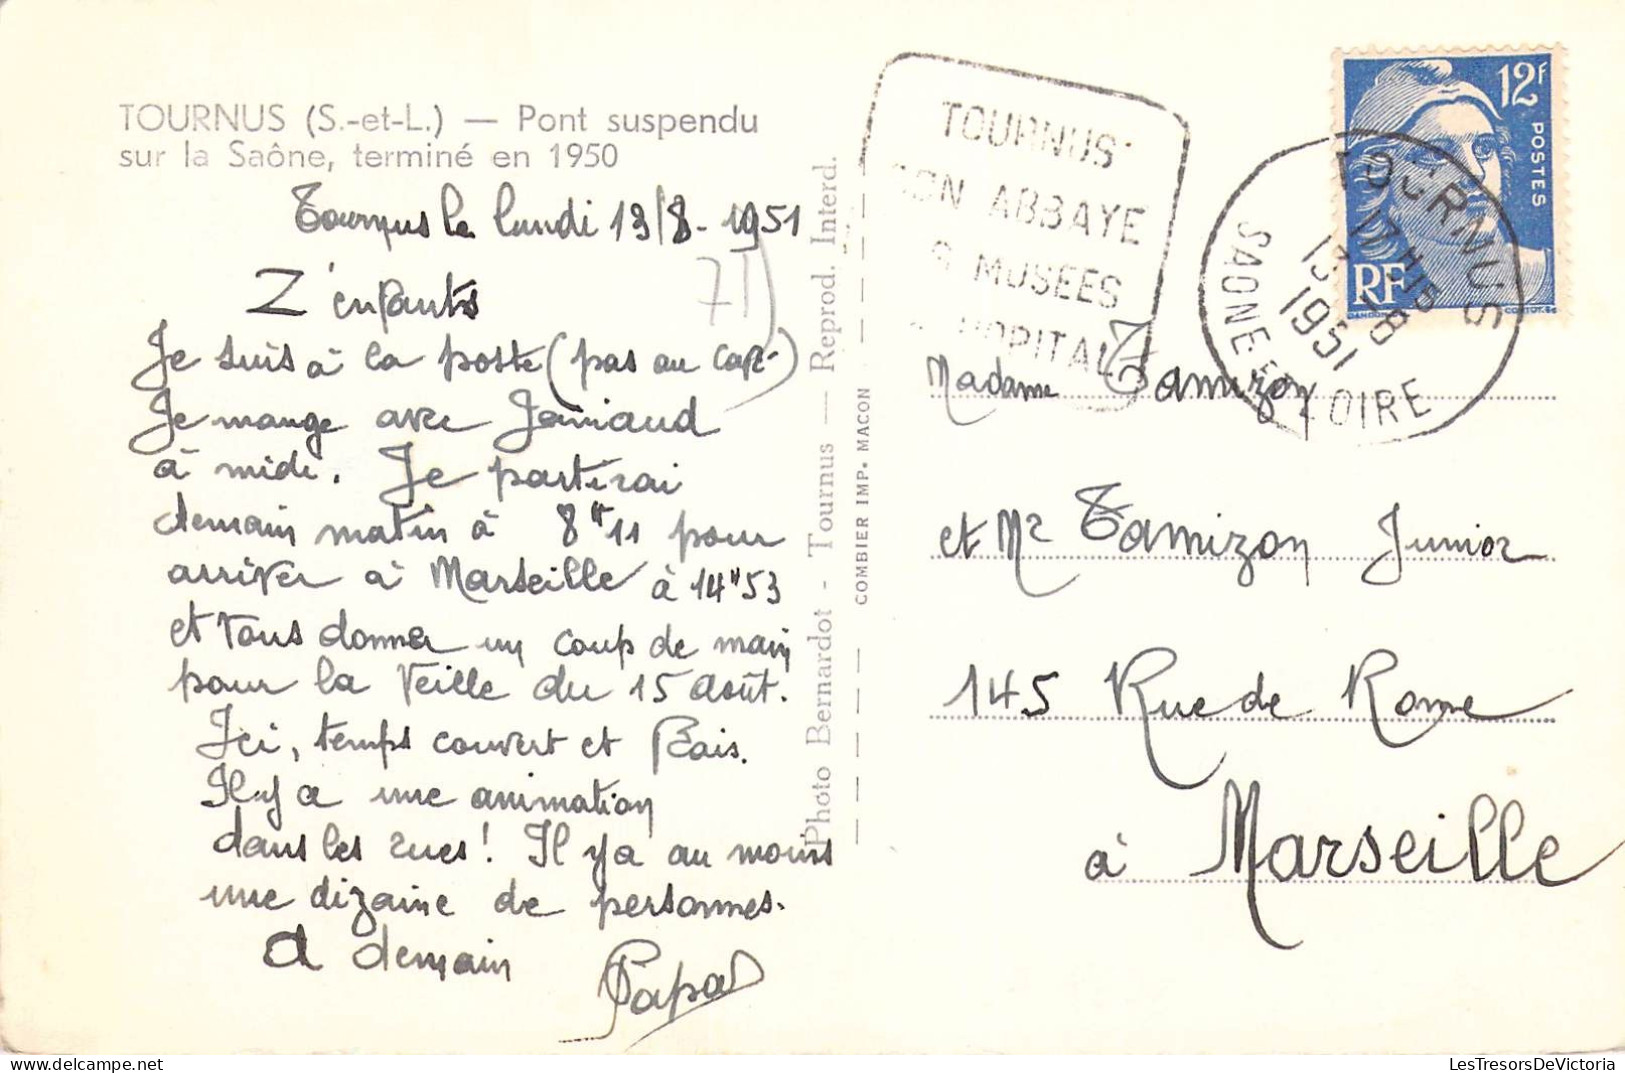 TOURNUS (S.-et-L.) — Pont suspendu
sur la Saône, terminé en 1950
Tournus le lundi 13/8-1951
Z'enfants
71
Je suis à la poste (pas au café)
Je mange avec
à midi. Je partirai
demain matin à 8H11 pour
arriver à Marseille à 14H53
et vous donner un coup de main
pour la veille du 15 août.
Ici, temps couvert et Bais.
Il y a une animation
dans les rues! Il y a au moins
une dizaine de personnes.
A demain
Papa
Photo Bernardot - Tournus — Reprod. Interd.
COMBIER IMP. MACON
TOURNUS
SON ABBAYE
MUSEES
HOPITAL
12F
POSTES
RF
GANDON
TOURNUS
17H15
13-8
1951
SAONE ET LOIRE
Madame Tamizon
et Mr Tamizon Junior
145 Rue de Rome
à Marseille
LesTresorsDeVictoria